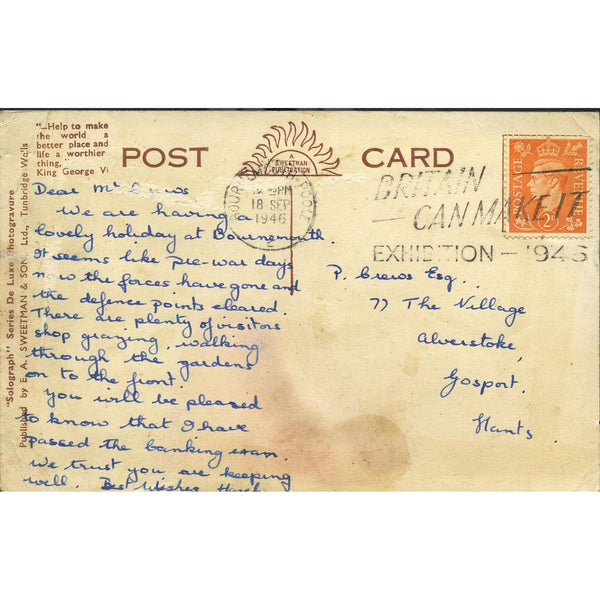 "—Help to make
the world a
better place and
life a worthier
thing."
King George VI
POST CARD
A
SWEETMAN
PRODUCTION
18 SEP
1946
2
BRITAIN
CAN MAKE IT
EXHIBITION — 1946
POSTAGE REVENUE
"Solograph" Series De Luxe Photogravure
Published by E. A. SWEETMAN & SON, Ltd., Tunbridge Wells
Dear Mr Crews
We are having a
lovely holiday at Bournemouth.
It seems like pre-war days
now the forces have gone and
the defence points cleared.
There are plenty of visitors
shop grazing, walking
through the gardens
on to the front.
You will be pleased
to know that I have
passed the banking exam.
We trust you are keeping
well. Best Wishes
P. Crews Esq.
77 The Village
Alverstoke,
Gosport,
Hants.